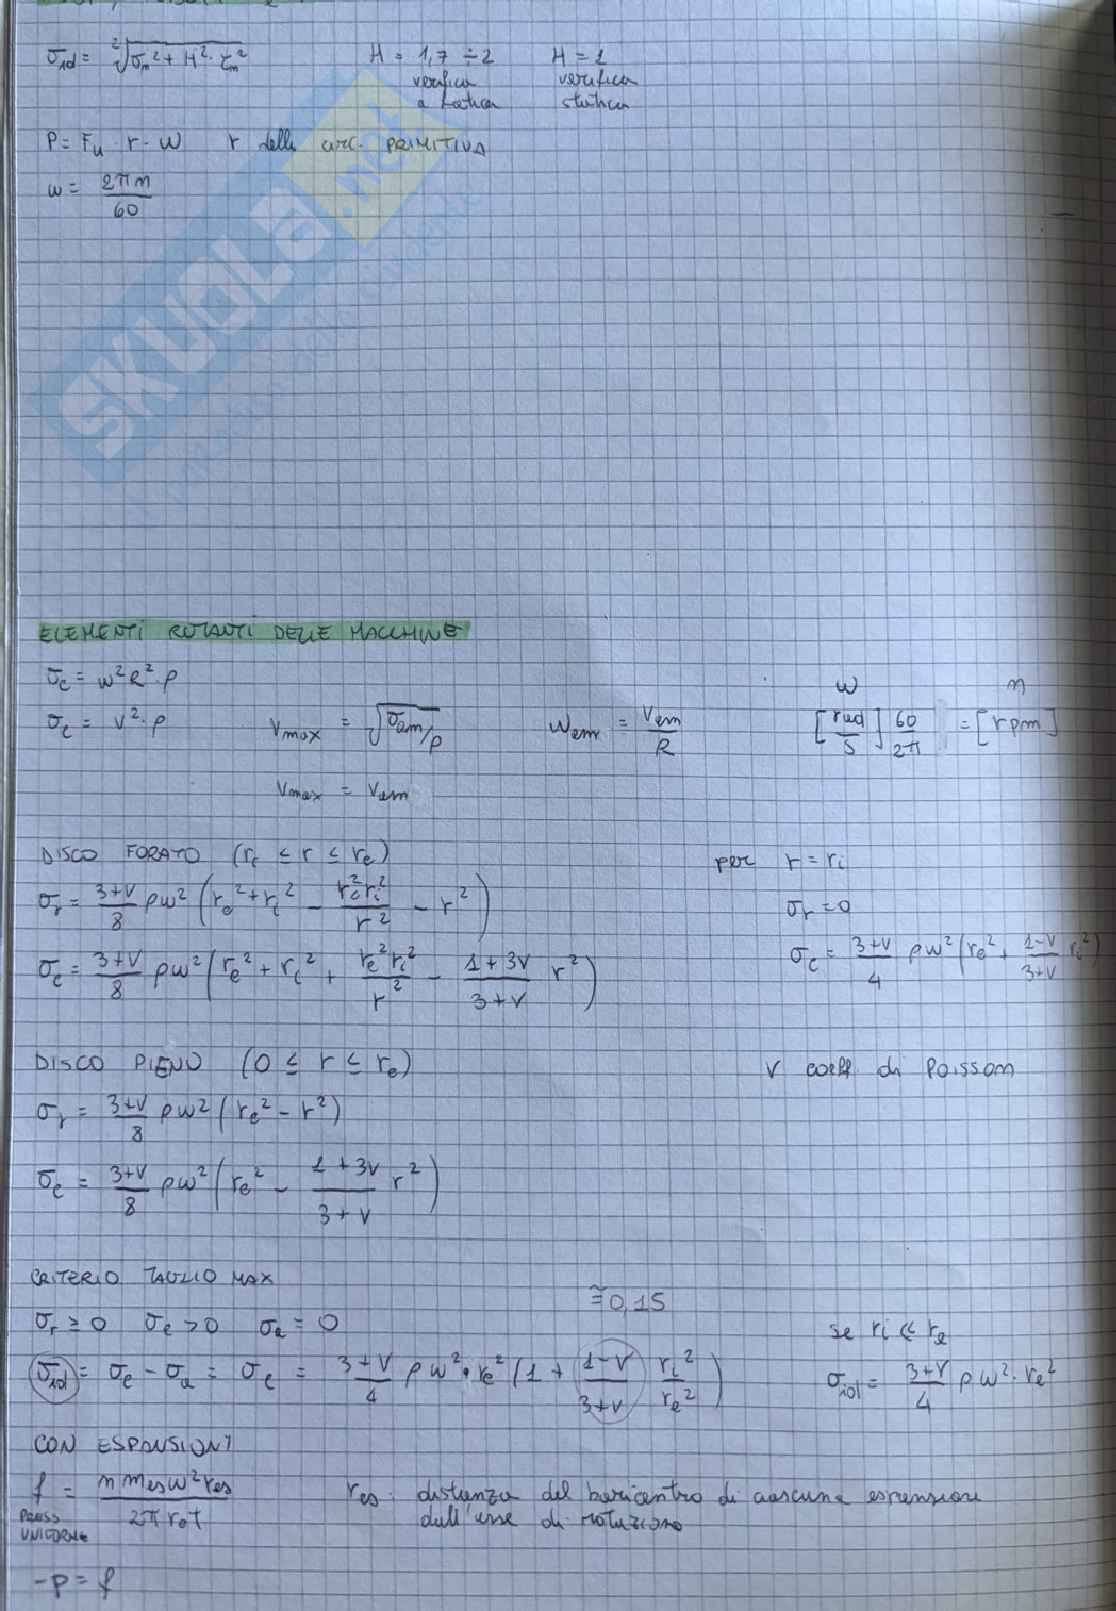 σid = ²√σn² + H²·τm²    H = 1,7 ÷ 2    H = 1
verifica    verifica
a fatica    statica
P = Fu · r · ω    r della circ. PRIMITIVA
ω = 2πn / 60
SKUOLA.net
ELEMENTI ROTANTI DELLE MACCHINE
σc = ω²R²·ρ
σc = v²·ρ    vmax = √σam/ρ    ωam = vam / R    ω [rad/s] 60/2π = n [rpm]
vmax = vam
DISCO FORATO (ri ≤ r ≤ re)    per r = ri
σr = 3+ν/8 ρω² (re² + ri² - re²ri²/r² - r²)    σr = 0
σc = 3+ν/8 ρω² (re² + ri² + re²ri²/r² - 1+3ν/3+ν r²)    σc = 3+ν/4 ρω² (re² + 1-ν/3+ν ri²)
DISCO PIENO (0 ≤ r ≤ re)    ν coeff di Poisson
σr = 3+ν/8 ρω² (re² - r²)
σc = 3+ν/8 ρω² (re² - 1+3ν/3+ν r²)
CRITERIO TAGLIO MAX
≅ 0,15
σr ≥ 0    σc > 0    σa = 0    se ri ≪ re
σid = σc - σa = σc = 3+ν/4 ρω²·re² (1 + 1-ν/3+ν ri²/re²)    σid = 3+ν/4 ρω²·re²
CON ESPANSIONI
f = n mes ω² res / 2π re t    res: distanza del baricentro di ciascuna espansione
PRESS UNIFORME    dall'asse di rotazione
-p = f